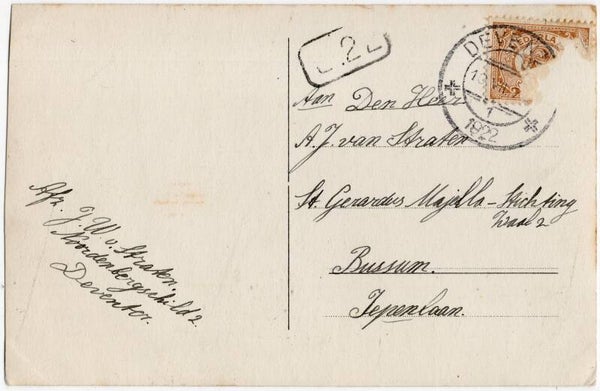 DEVEN
1922
1
2
Aan Den Heer
A. J. van Straten
St. Gerardus Majella-Stichting
Zaal 2
Bussum.
Iepenlaan.
Afz. J. W. v. Straten.
Noordenbergschild 2
Deventer.